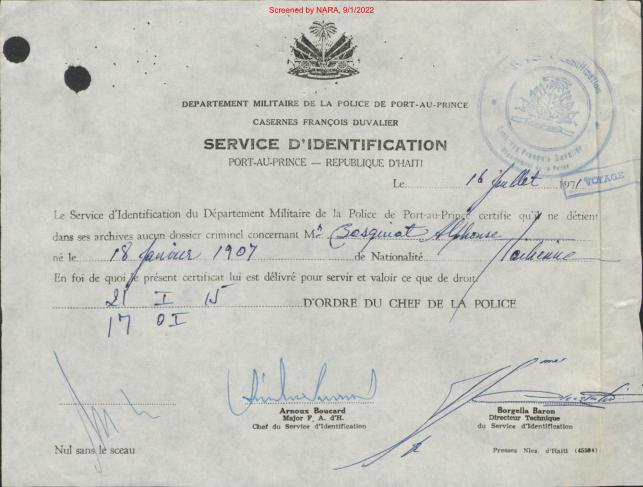 Screened by NARA, 9/1/2022
DEPARTEMENT MILITAIRE DE LA POLICE DE PORT-AU-PRINCE
CASERNES FRANÇOIS DUVALIER
SERVICE D'IDENTIFICATION
PORT-AU-PRINCE — REPUBLIQUE D'HAITI
Le 16 Juillet 1971
VOYAGE
Le Service d'Identification du Département Militaire de la Police de Port-au-Prince certifie qu'il ne détient
dans ses archives aucun dossier criminel concernant Mr Alphonse
né le 18 Janvier 1907 de Nationalité
En foi de quoi le présent certificat lui est délivré pour servir et valoir ce que de droit
21 I 15 D'ORDRE DU CHEF DE LA POLICE
17 OI
Arnoux Boucard
Major F. A. d'H.
Chef du Service d'Identification
Borgella Baron
Directeur Technique
du Service d'Identification
Nul sans le sceau
Presses Nles. d'Haiti (45584)